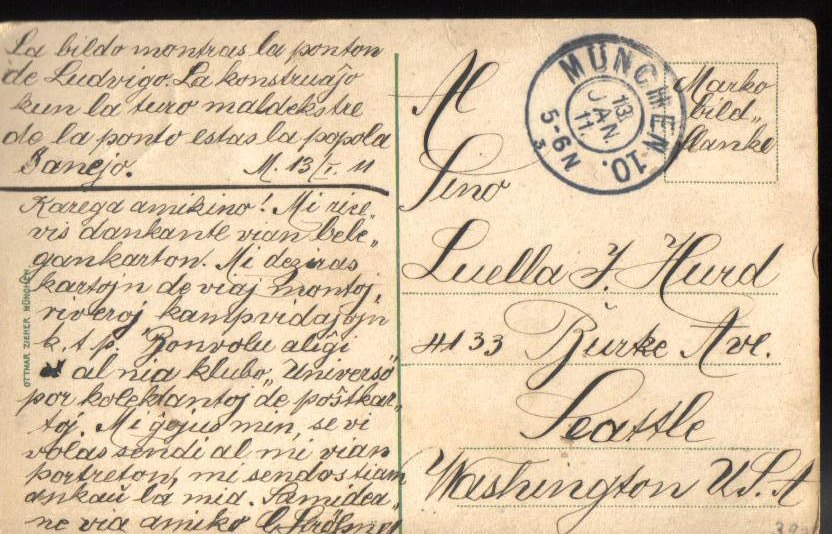 La bildo montras la ponton
de Ludvigo. La konstruaĵo
kun la turo maldekstre
de la ponto estas la popola
Banejo. M. 13/I. 11
Karega amikino! Mi rice„
vis dankante vian bele„
gan karton. Mi deziras
kartojn de viaj montoj,
riveroj kampvidaĵojn
k. t. p. Bonvolu aliĝi
al nia klubo „Universo"
por kolektantoj de poŝtkar„
toj. Mi ĝojus min, se vi
volas sendi al mi vian
portreton, mi sendos tiam
ankaŭ la mia. Samidea„
ne via amiko
OTTMAR ZIEHER, MÜNCHEN
MÜNCHEN 10.
13.
JAN.
11.
5-6 N
3
Marko
bild„
flanke
Al
Sino
Luella F. Hurd
4133 Burke Ave.
Seattle
Washington U.S.A